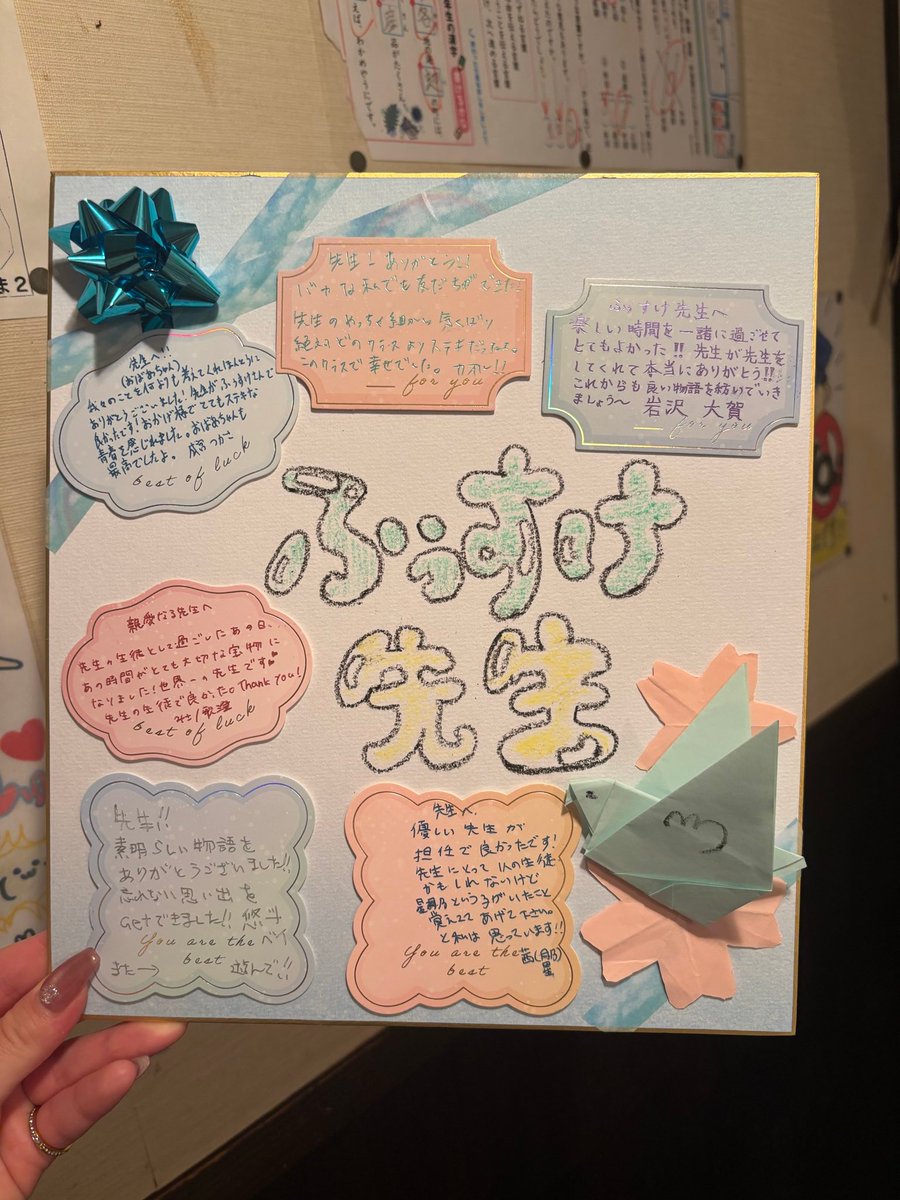 先生!ありがとう!!
バカな私でも友だちができた!
先生のめっちゃ細かい気くばり
絶対どのクラスよりステキだったよ。
このクラスで幸せでした。カホ!!
for you
ふぅすけ先生へ
楽しい時間を一緒に過ごせて
とてもよかった!!先生が先生を
してくれて本当にありがとう!!
これからも良い物語を紡いでいき
ましょう〜 岩沢 大賀
for you
先生へ!!
(おばあちゃん)
我々のことを何よりも考えてくれほんとうに
ありがとうございました!先生がふぅすけさんで
良かったです!おかげ様でとてもステキな
青春を感じれました。おばあちゃんも
最高でしたよ。
Best of luck
ふぅすけ
先生
親愛なる先生へ
先生の生徒として過ごしたあの日、
あの時間がとても大切な宝物に
なりました!世界一の先生です
先生の生徒で良かった。Thank You!
Best of luck
先生!!
素晴らしい物語を
ありがとうございました!!
忘れない思い出を
Getできました!! 悠斗
You are the
best
ベイ
また→ 遊んで!!
先生へ、
優しい先生が
担任で良かったです!
先生にとって1人の生徒
かもしれないけど
という子がいたこと
覚えててあげて下さい。
と私は思っています!!
You are the
best
茜
星
3
ま2